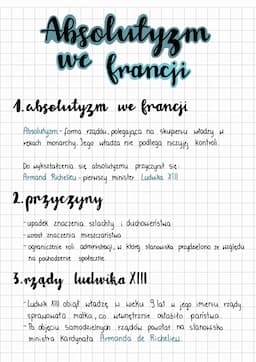 Absolutyzm
we francji
1. absolutyzm we francji
Absolutyzm - forma rządów, polegająca na skupieniu władzy w
rękach monarchy. Jego władza nie podlega niczyjej kontroli.
Do wykształcenia się absolutyzmu przyczynił się:
Armand Richelieu - pierwszy minister Ludwika XIII
2. przyczyny
- upadek znaczenia szlachty i duchowieństwa
- wzrost znaczenia mieszczaństwa
- ograniczenie roli administracji, w której stanowiska przydzielano ze względu
na pochodzenie społeczne.
3. rządy ludwika XIII
- Ludwik XIII objął władzę w wieku 9 lat w jego imieniu rządy
sprawowała matka, co wewnętrznie osłabiło państwo.
- Po objęciu samodzielnych rządów powołał na stanowisko
ministra Kardynała Armanda de Richelieu.